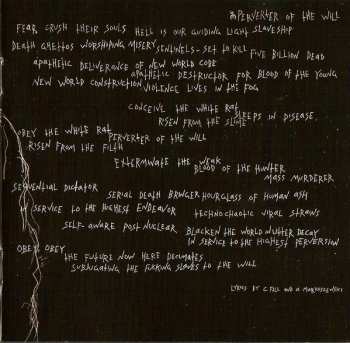 PERVERTER OF THE WILL
FEAR CRUSH THEIR SOULS HELL IS OUR GUIDING LIGHT SLAVESHIP
DEATH GHETTOS WORSHIPING MISERY SENTINELS-SET TO KILL FIVE BILLION DEAD
APATHETIC DELIVERANCE OF NEW WORLD CODE
APATHETIC DESTRUCTOR FOR BLOOD OF THE YOUNG
NEW WORLD CONSTRUCTION VIOLENCE LIVES IN THE FOG
CONCEIVE THE WHITE RAT SLEEPS IN DISEASE
RISEN FROM THE SLIME
OBEY THE WHITE RAT PERVERTER OF THE WILL
RISEN FROM THE FILTH
EXTERMINATE THE WEAK
BLOOD OF THE HUNTER
MASS MURDERER
SEQUENTIAL DICTATOR
SERIAL DEATH BRINGER HOURGLASS OF HUMAN ASH
IN SERVICE TO THE HIGHEST ENDEAVOR TECHNOCHAOTIC VIRAL STRAWS
SELF-AWARE POST NUCLEAR BLACKEN THE WORLD NUTTER DECOY
IN SERVICE TO THE HIGHEST PERVERSION
OBEY OBEY
THE FUTURE NOW HERE DECIMATES
SUBJUGATING THE FUKKING SLAVES TO THE WILL
LYRICS BY C FALL AND A